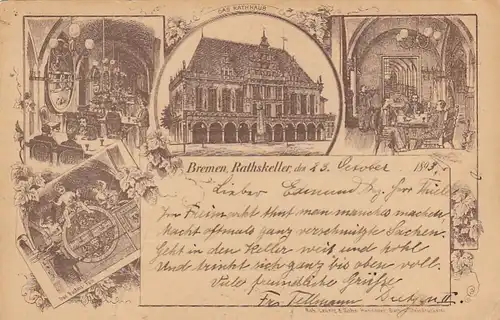 DAS RATHHAUS
Bremen, Rathskeller, den 23. October 1893.
Lieber Edmund
Im Freimarkt thut man manches machen
Macht oftmals ganz verschmitzte Sachen.
Geht in den Keller weit und hohl
Und trinkt sich ganz bis oben voll.
Viele freundliche Grüße
Fr. Tellmann